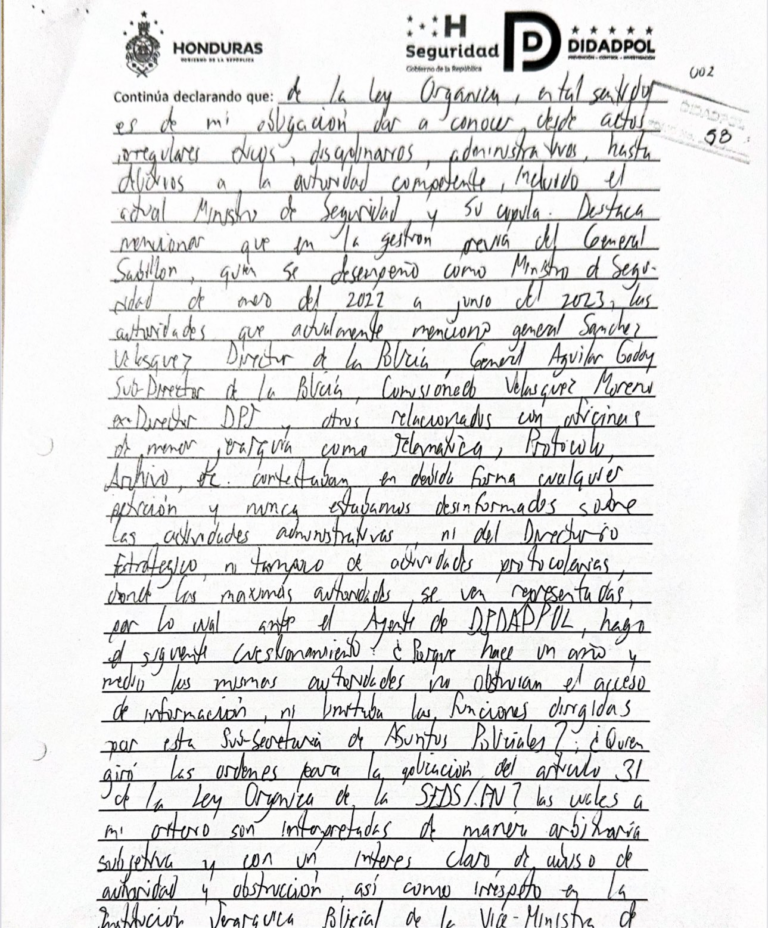 HONDURAS
GOBIERNO DE LA REPÚBLICA
H
Seguridad
Gobierno de la República
DIDADPOL
PREVENCIÓN • CONTROL • INVESTIGACIÓN
002
DIDADPOL
58
Continúa declarando que: de la Ley Organica, en tal sentido
es de mi obligación dar a conocer desde actos
irregulares, disciplinarios, administrativos, hasta
delictivos a la autoridad competente, incluido el
actual Ministro de Seguridad y su cupula. Destaca
mencionar que en la gestion previa del General
Sabillon, quien se desempeño como Ministro de Segu-
ridad de enero del 2022 a junio del 2023, las
autoridades que actualmente menciono general Sanchez
Velasquez Director de la Policía, General Aguilar Godoy
Sub-Director de la Policía, Comisionado Velasquez Moreno
ex-Director DPI y otros relacionados con oficinas
de menor jerarquia como Telematica, Protocolo,
Archivo, etc. contestaban en debida forma cualquier
petición y nunca estabamos desinformados sobre
las actividades administrativas, ni del Directorio
Estrategico, ni tampoco de actividades protocolarias,
donde las maximas autoridades se ven representadas,
por lo cual ante el Agente de DIDADPOL, hago
el siguiente cuestionamiento: ¿Porque hace un año y
medio las mismas autoridades no obstruian el acceso
de información, ni limitaba las funciones dirigidas
por esta Sub-Secretaria de Asuntos Policiales?; ¿Quien
giró las ordenes para la aplicacion del articulo 31
de la Ley Organica de la SEDS/PN? las cuales a
mi criterio son interpretadas de manera arbitraria
subjetiva y con un interes claro de abuso de
autoridad y obstrucción, así como irrespeto en la
Institución Jerarquica Policial de la Vice-Ministra de